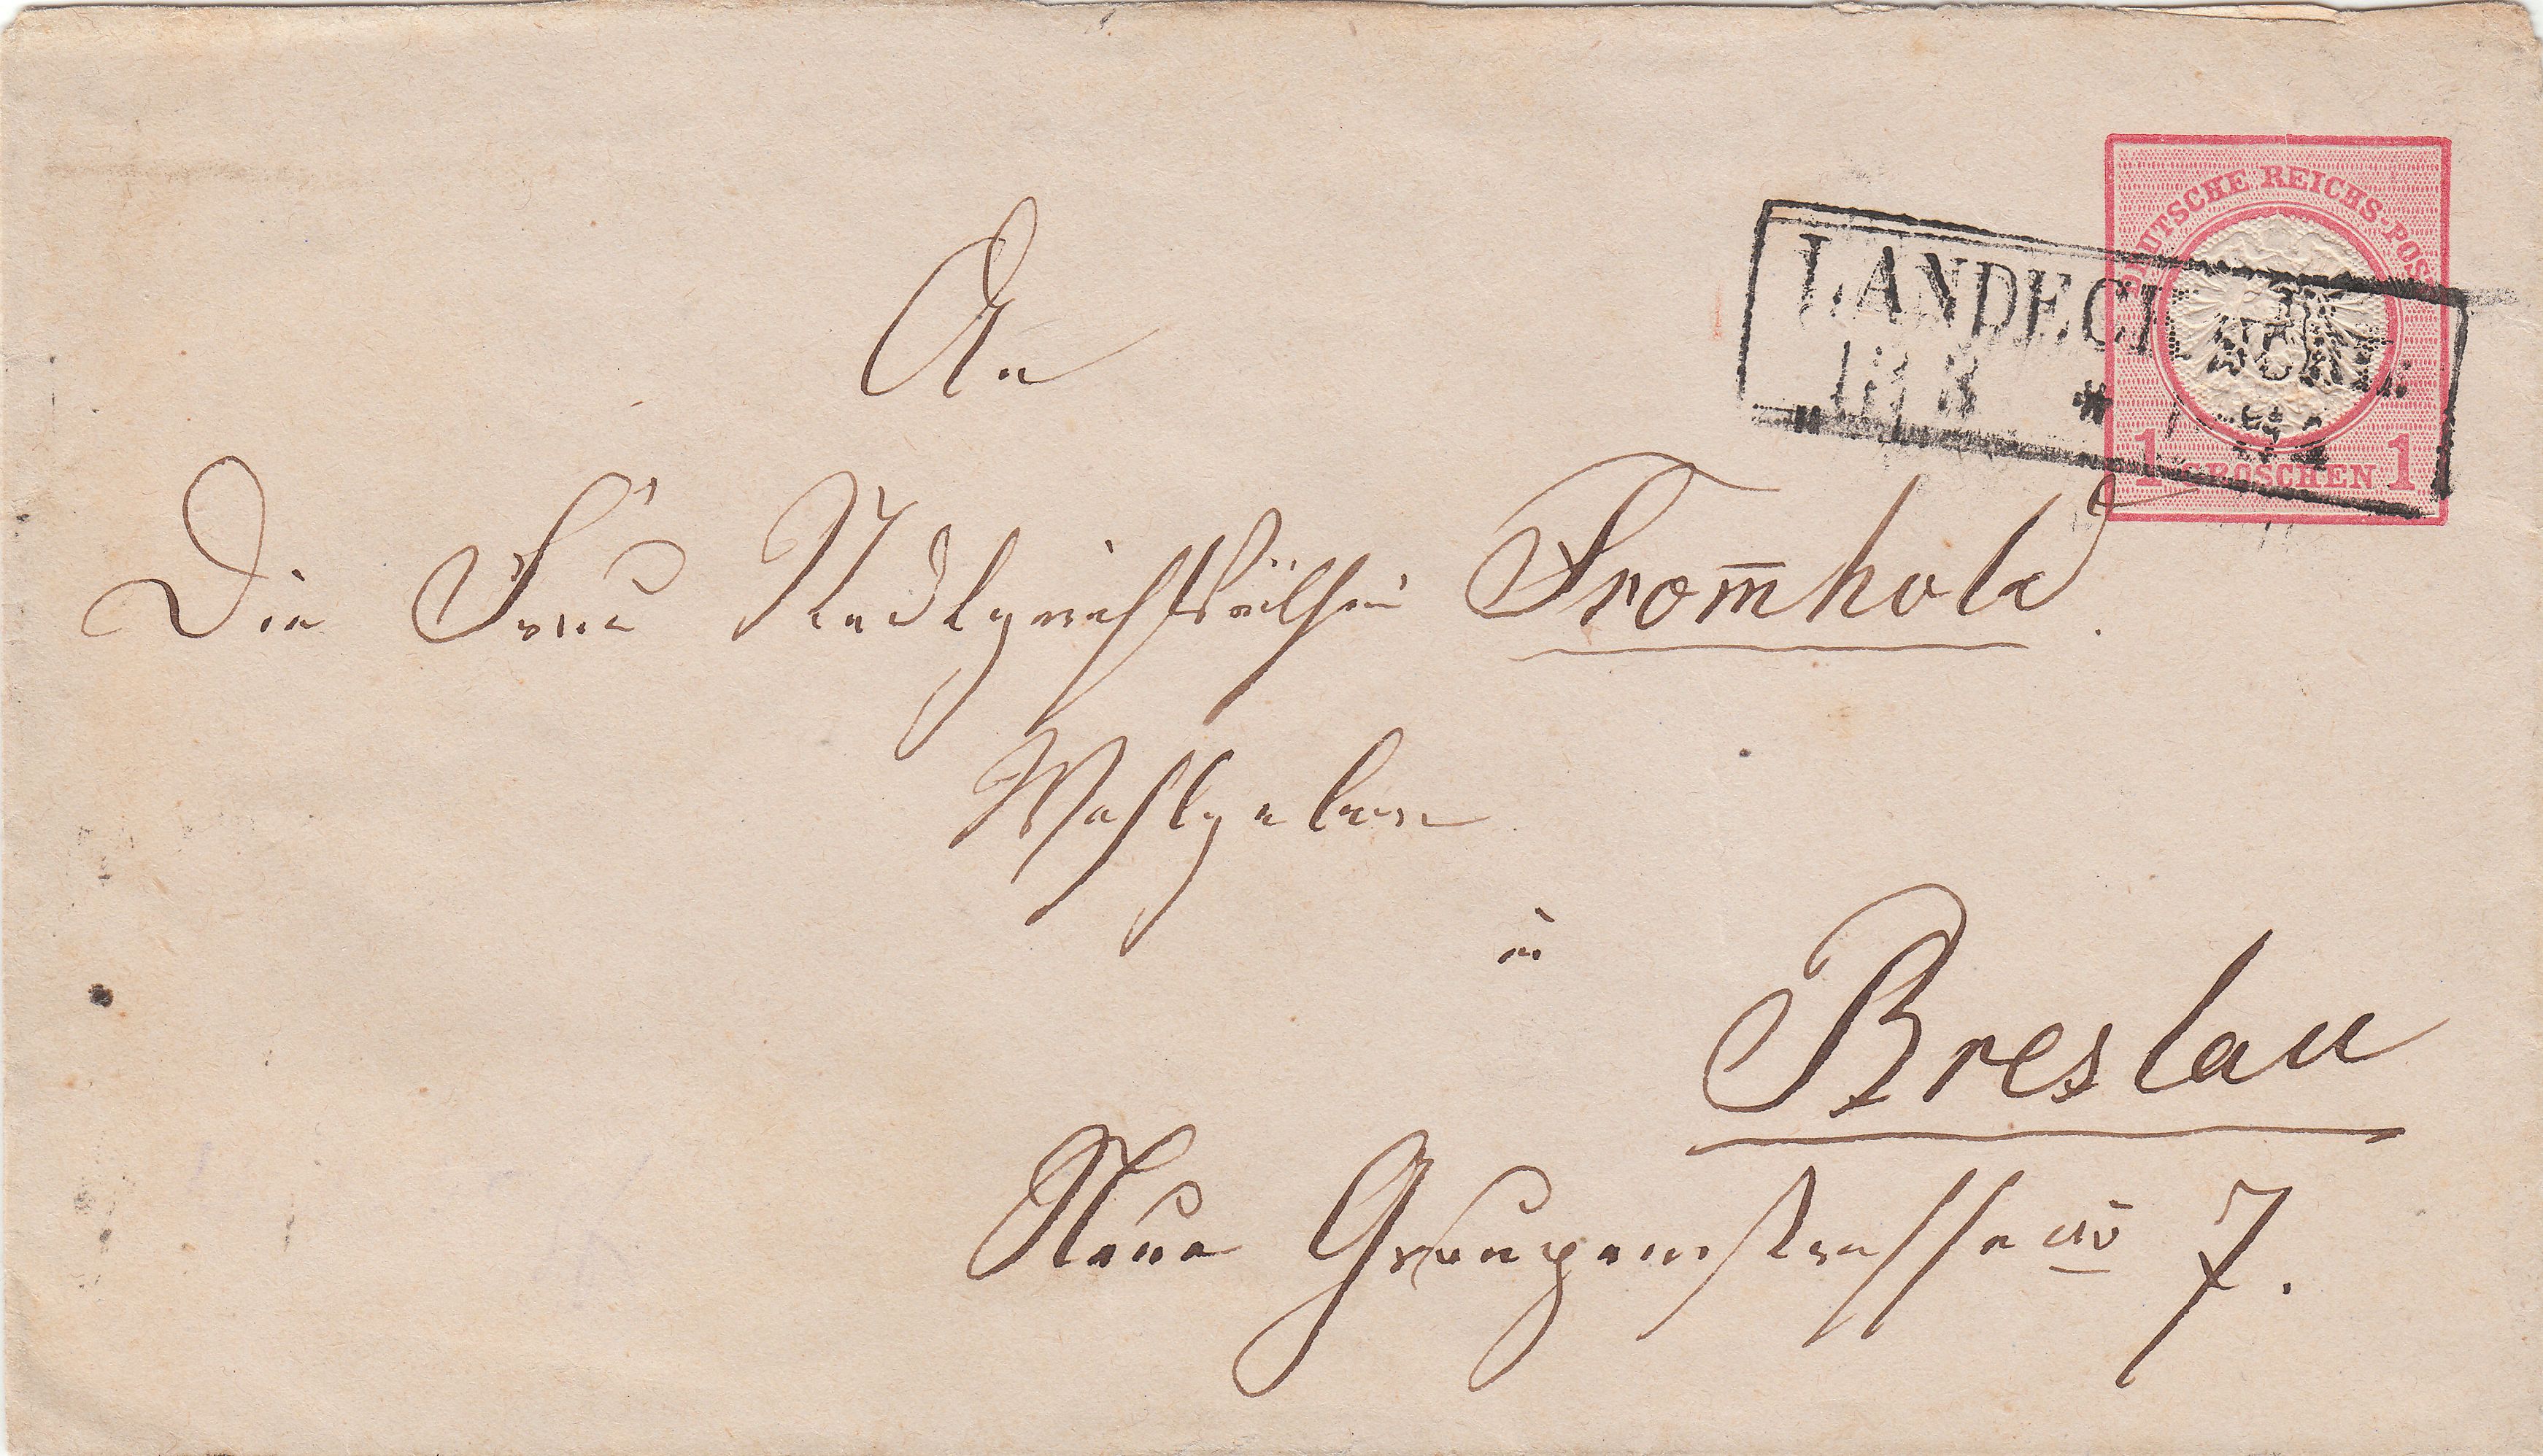 DEUTSCHE REICHS-POST
LANDECK
18 8 *
1 GROSCHEN 1
An
Die Frau Stadtgerichtsräthin From̅hold.
Wohlgeboren
in
Breslau
Neue Graupenstrasse No 7.